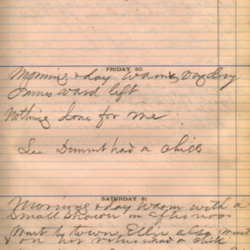 FRIDAY 30
Morning & day Warm & day dry
James Ward left
Nothing done for me
Lee Dimmit had a chill
SATURDAY 31
Morning & day Warm with a
Small Shower in afternoon
Went to town, Ellie also Went
& on her return had a chill